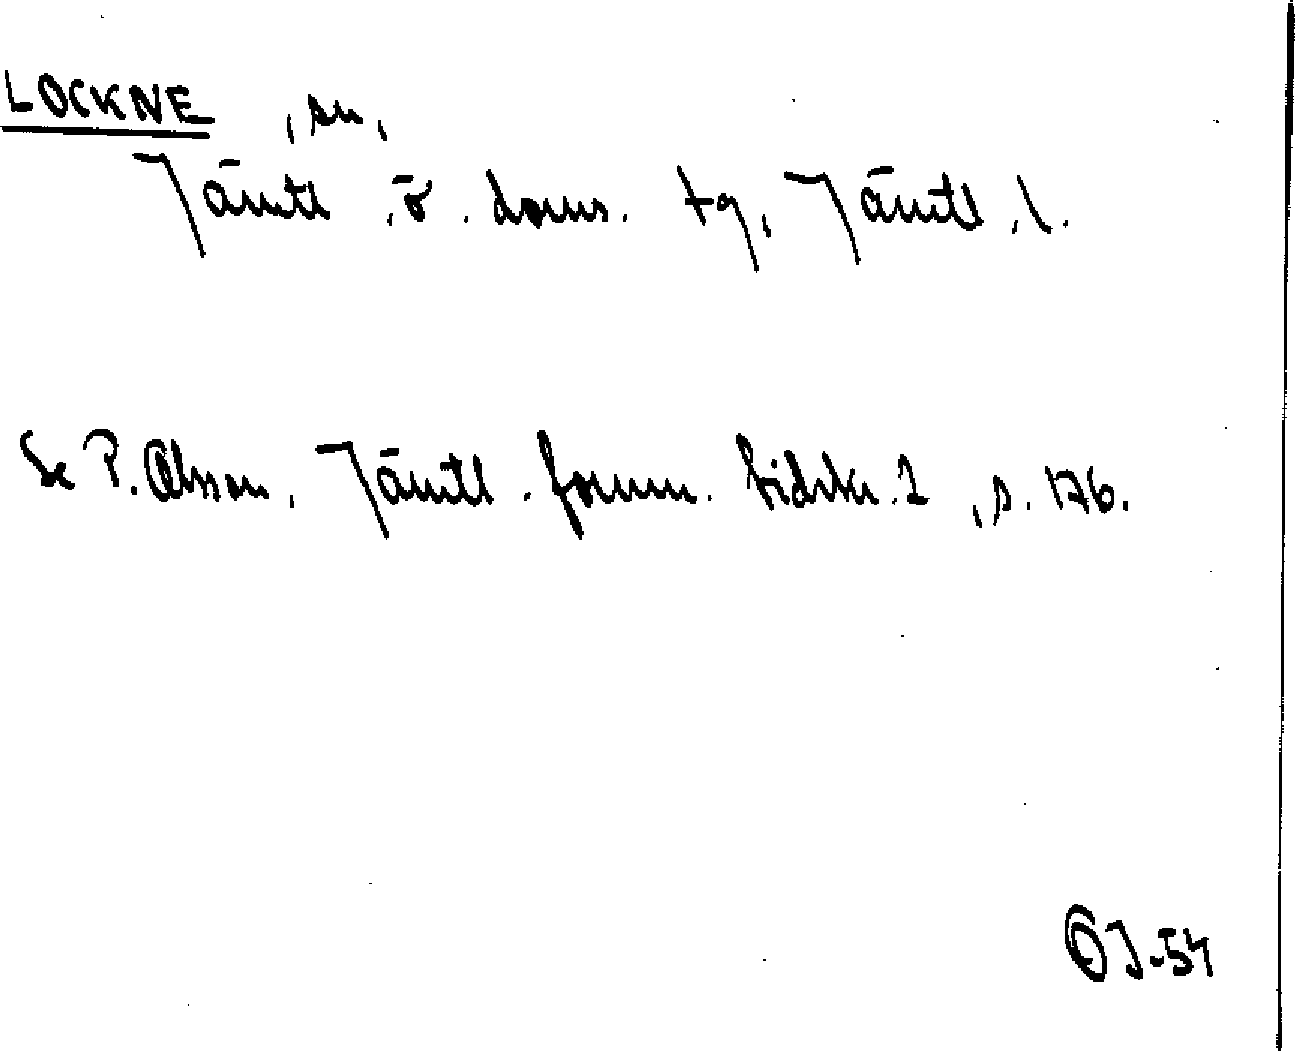 LOCKNE, sn,
Jämtl. ö. doms. tg, Jämtl. l.
Se P. Olsson, Jämtl. fornm. tidskr. 1, s. 176.
OJ-54